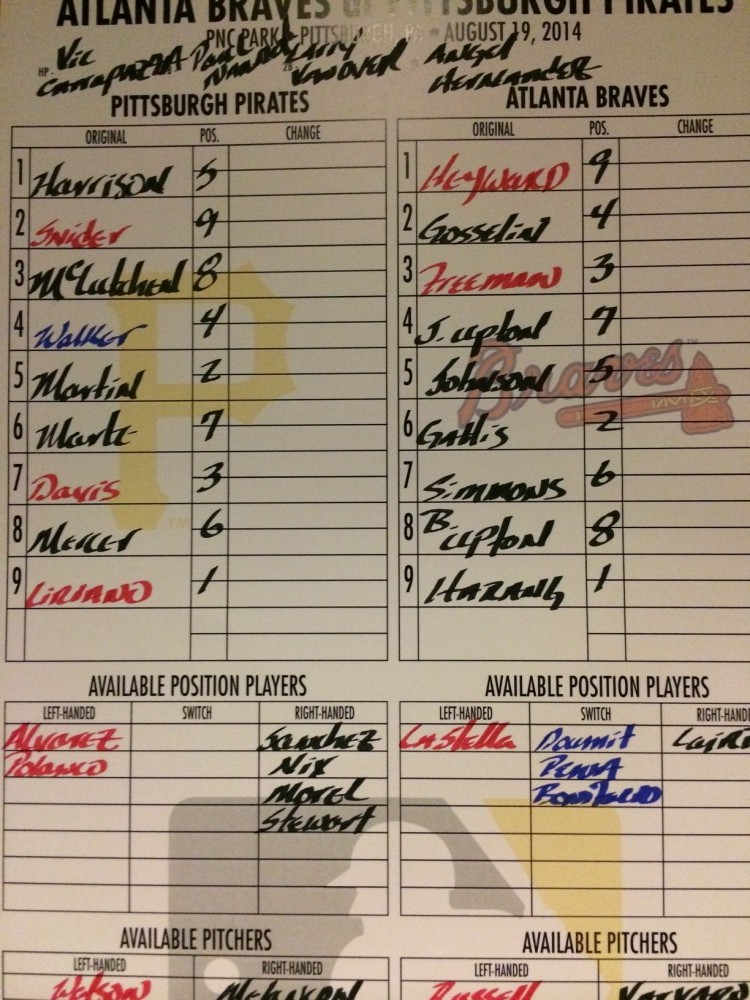 ATLANTA BRAVES at PITTSBURGH PIRATES
PNC PARK • PITTSBURGH, PA • AUGUST 19, 2014
HP - Vic Carapazza Paul Larry Vanover Angel Hernandez
PITTSBURGH PIRATES
ORIGINAL POS. CHANGE
1 Harrison 5
2 Snider 9
3 McCutchen 8
4 Walker 4
5 Martin 2
6 Marte 7
7 Davis 3
8 Mercer 6
9 Liriano 1
AVAILABLE POSITION PLAYERS
LEFT-HANDED SWITCH RIGHT-HANDED
Alvarez Sanchez
Polanco Nix
Morel
Stewart
AVAILABLE PITCHERS
LEFT-HANDED RIGHT-HANDED
Wilson
ATLANTA BRAVES
ORIGINAL POS. CHANGE
1 Heyward 9
2 Gosselin 4
3 Freeman 3
4 J. Upton 7
5 Johnson 5
6 Gattis 2
7 Simmons 6
8 B. Upton 8
9 Harang 1
Braves
AVAILABLE POSITION PLAYERS
LEFT-HANDED SWITCH RIGHT-HAND
LaStella Doumit
Pena
Bonifacio
AVAILABLE PITCHERS
LEFT-HANDED RIGHT-HANDED
Russell